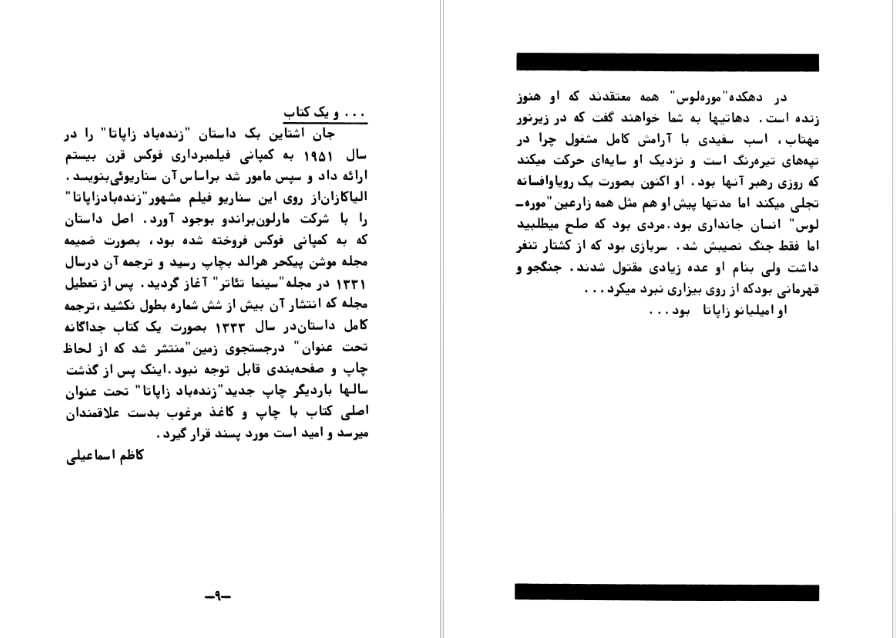 در دهکده"مورەلوس" همه معتقدند که او هنوز
زنده است. دهاتیها به شما خواهند گفت که در زیرنور
مهتاب، اسب سفیدی با آرامش کامل مشغول چرا در
تپه‌های تیره‌رنگ است و نزدیک او سایه‌ای حرکت میکند
که روزی رهبر آنها بود. او اکنون بصورت یک رویاوافسانه
تجلی میکند اما مدتها پیش او هم مثل همه زارعین"موره-
لوس" انسان جانداری بود.مردی بود که صلح میطلبید
اما فقط جنگ نصیبش شد. سربازی بود که از کشتار تنفر
داشت ولی بنام او عده زیادی مقتول شدند. جنگجو و
قهرمانی بودکه از روی بیزاری نبرد میکرد...
او امیلیانو زاپاتا بود...
... و یک کتاب
جان اشتاین بک داستان "زنده‌باد زاپاتا" را در
سال ۱۹۵۱ به کمپانی فیلمبرداری فوکس قرن بیستم
ارائه داد و سپس مامور شد براساس آن سناریوئی‌بنویسد.
الیاکازان‌از روی این سناریو فیلم مشهور"زنده‌بادزاپاتا"
را با شرکت مارلون‌براندو بوجود آورد. اصل داستان
که به کمپانی فوکس فروخته شده بود، بصورت ضمیمه
مجله موشن پیکحر هرالد بچاپ رسید و ترجمه آن درسال
۱۳۳۱ در مجله"سینما تئاتر" آغاز گردید. پس از تعطیل
مجله که انتشار آن بیش از شش شماره بطول نکشید،ترجمه
کامل داستان‌در سال ۱۳۳۳ بصورت یک کتاب جداگانه
تحت عنوان" درجستجوی زمین"منتشر شد که از لحاظ
چاپ و صفحه‌بندی قابل توجه نبود.اینک پس از گذشت
سالها باردیگر چاپ جدید"زنده‌باد زاپاتا" تحت عنوان
اصلی کتاب با چاپ و کاغذ مرغوب بدست علاقمندان
میرسد و امید است مورد پسند قرار گیرد.
کاظم اسماعیلی
-۹-